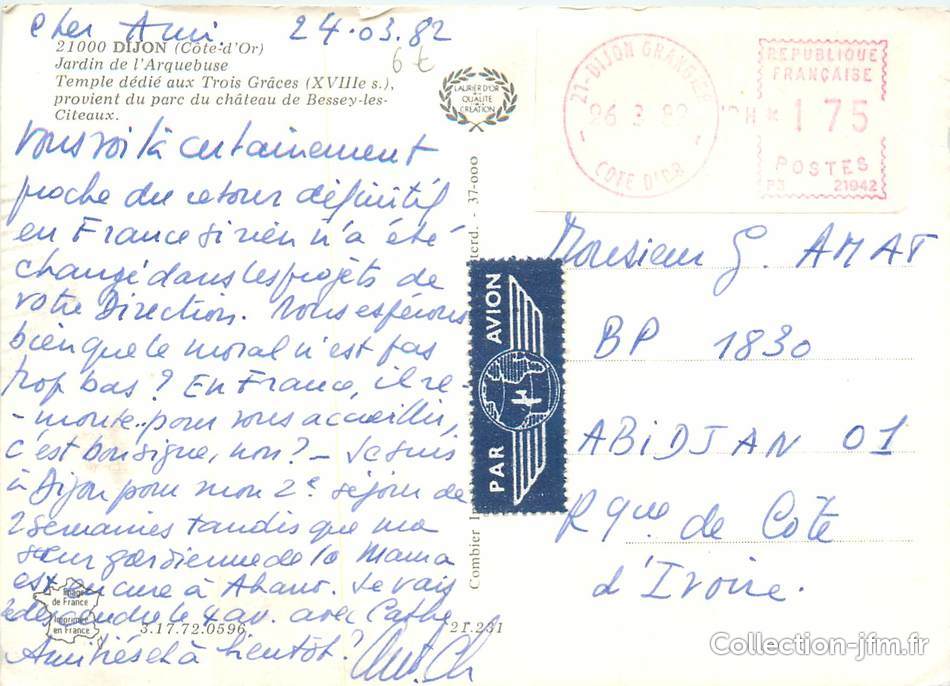 Cher Ami. 24.03.82
6€
21000 DIJON (Côte-d'Or)
Jardin de l'Arquebuse
Temple dédié aux Trois Grâces (XVIIIe s.),
provient du parc du château de Bessey-les-
Citeaux.
LAURIER D'OR
QUALITÉ
CRÉATION
21-DIJON GRANGIER
26 3 82
COTE D'OR
REPUBLIQUE
FRANÇAISE
175
POSTES
21942
Vous voilà certainement
proche du retour définitif
en France si rien n'a été
changé dans les projets de
votre Direction. Nous espérons
bien que le moral n'est pas
trop bas ? En France, il re-
-monte pour vous accueillir,
c'est bon signe, non ? - Je suis
à Dijon pour mon 2e séjour de
2 semaines tandis que ma
sœur gardienne de la Mama
est en cure à Abano. Je vais
redescendre le 4 av. avec
Amitiés et à bientôt
Image
de France
Imprimé
en France
3.17.72.0596
21.231
Combier - 37-000
PAR AVION
Monsieur G. AMAT
BP 1830
ABIDJAN 01
Rque de Côte
d'Ivoire.
www.Collection-jfm.fr